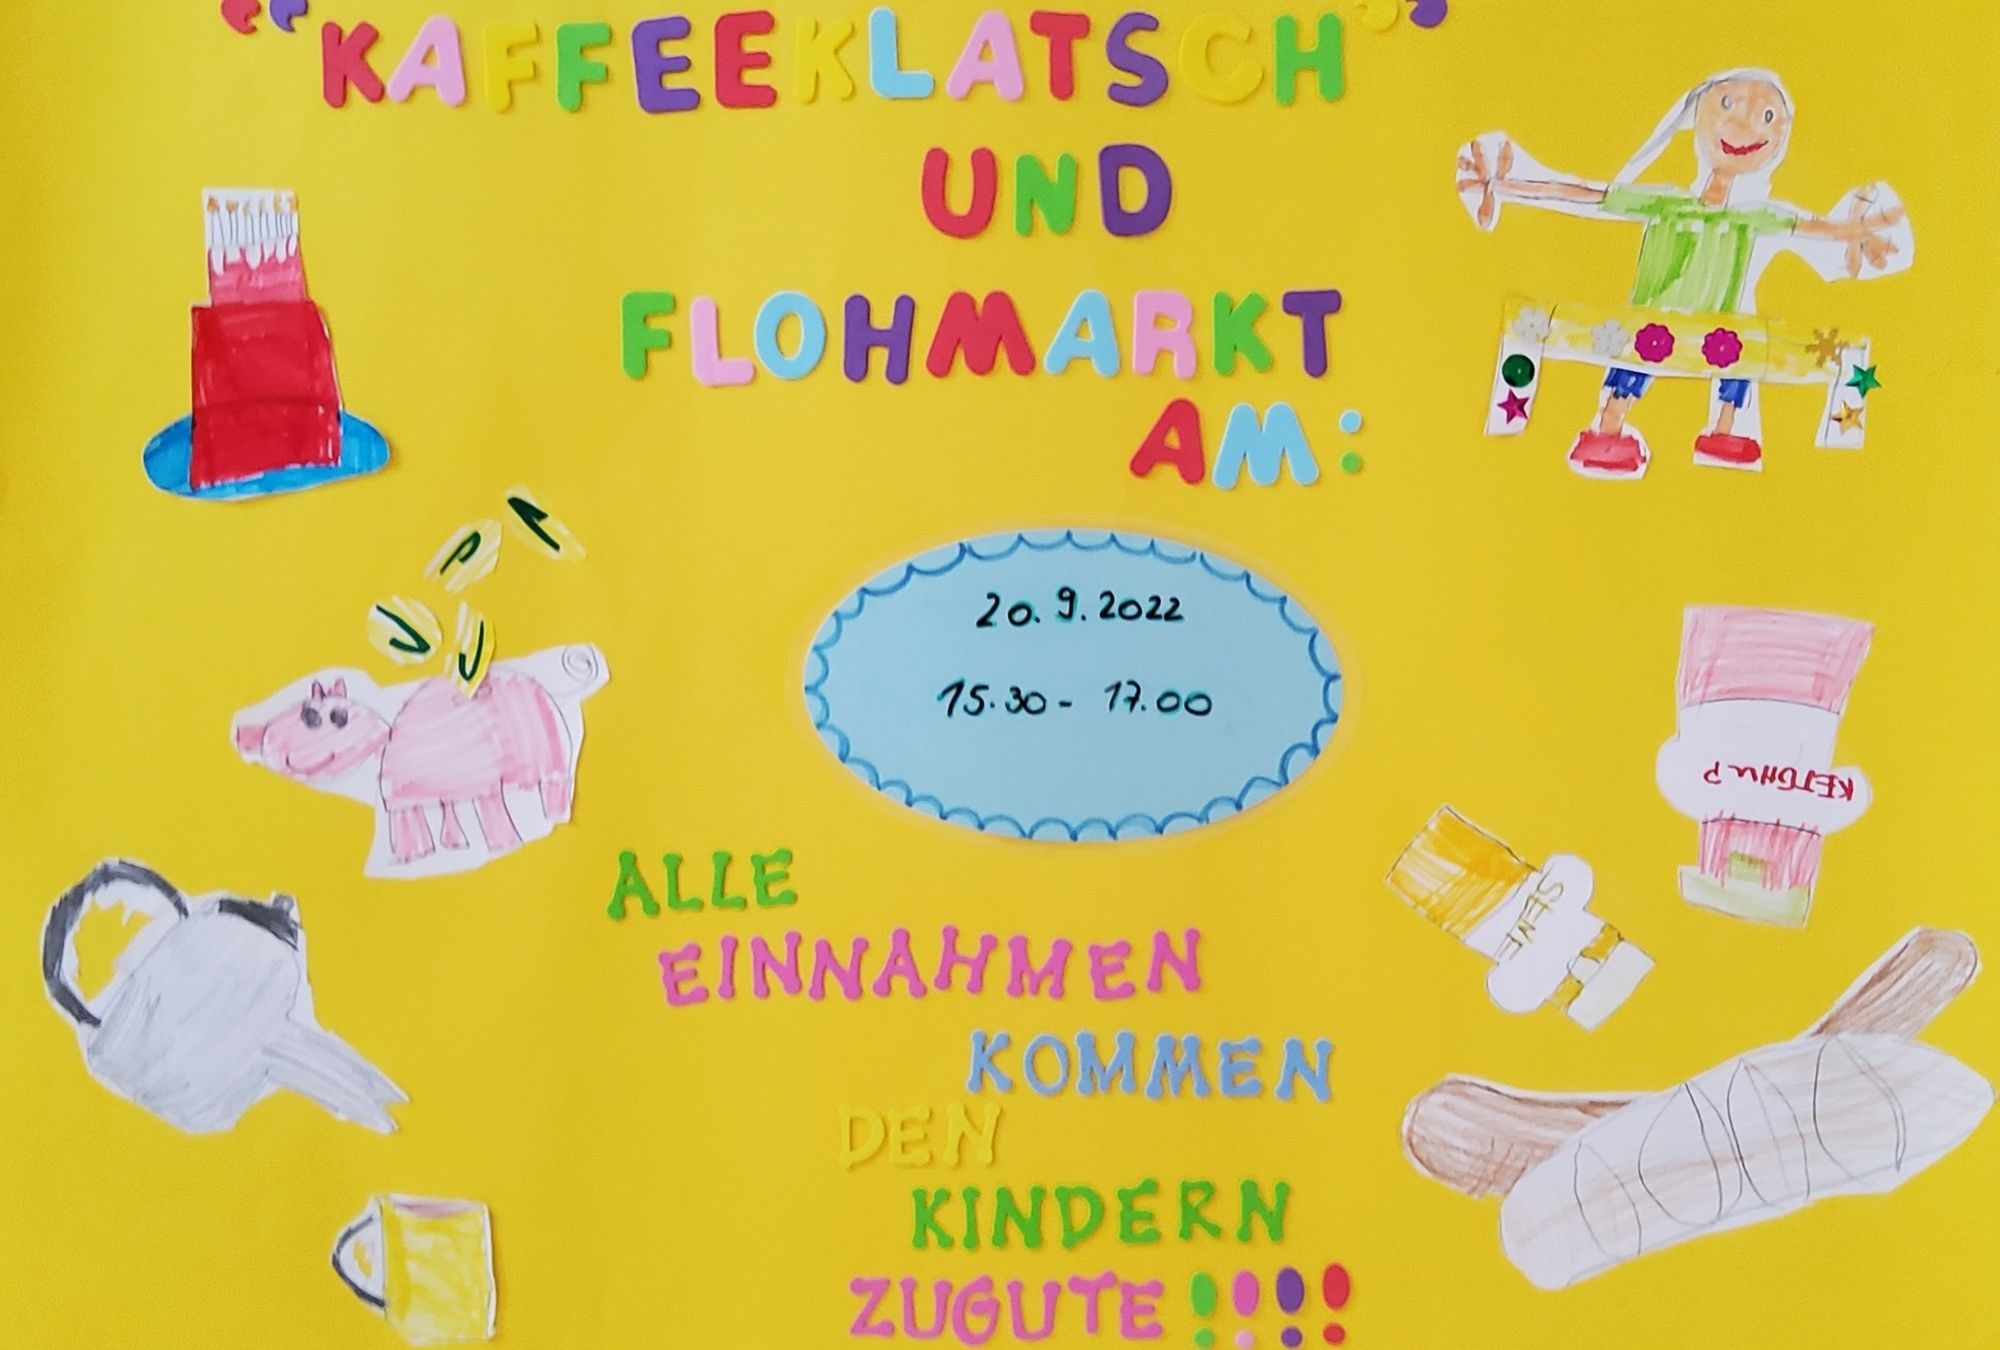 "KAFFEEKLATSCH"
UND
FLOHMARKT
AM:
20. 9. 2022
15.30 - 17.00
KETCHUP
SENF
ALLE
EINNAHMEN
KOMMEN
DEN
KINDERN
ZUGUTE!!!!